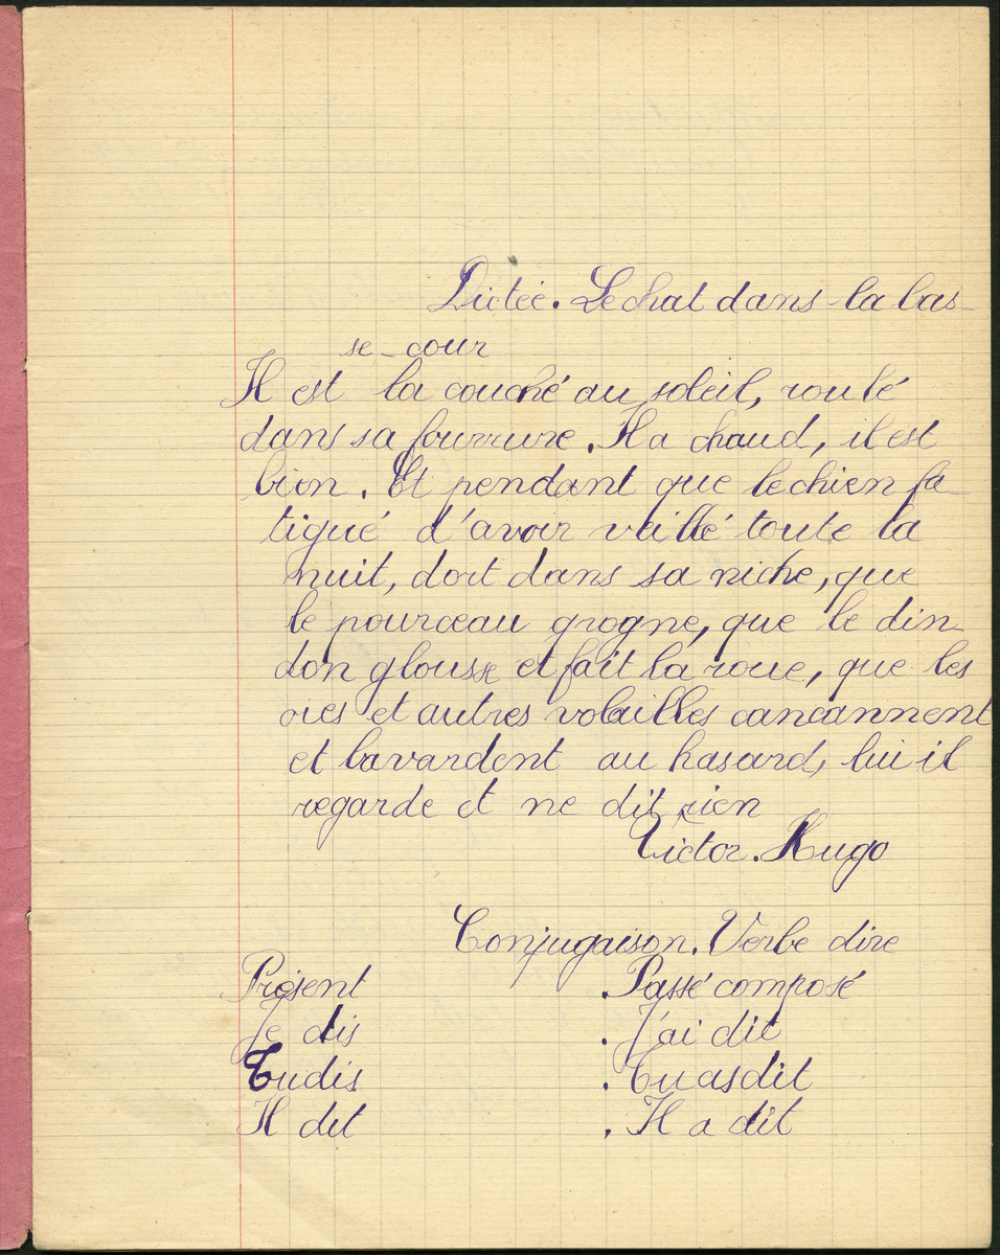 Dictée. Le chat dans la bas-
se-cour
Il est la couché au soleil, roulé
dans sa fourrure. Il a chaud, il est
bien. Et pendant que le chien fa-
tigué d'avoir veillé toute la
nuit, dort dans sa niche, que
le pourceau grogne, que le din-
don glousse et fait la roue, que les
oies et autres volailles cancannent
et bavardent au hasard, lui il
regarde et ne dit rien
Victor. Hugo
Conjugaison. Verbe dire
Présent . Passé composé
Je dis . J'ai dit
Tu dis . Tu as dit
Il dit . Il a dit